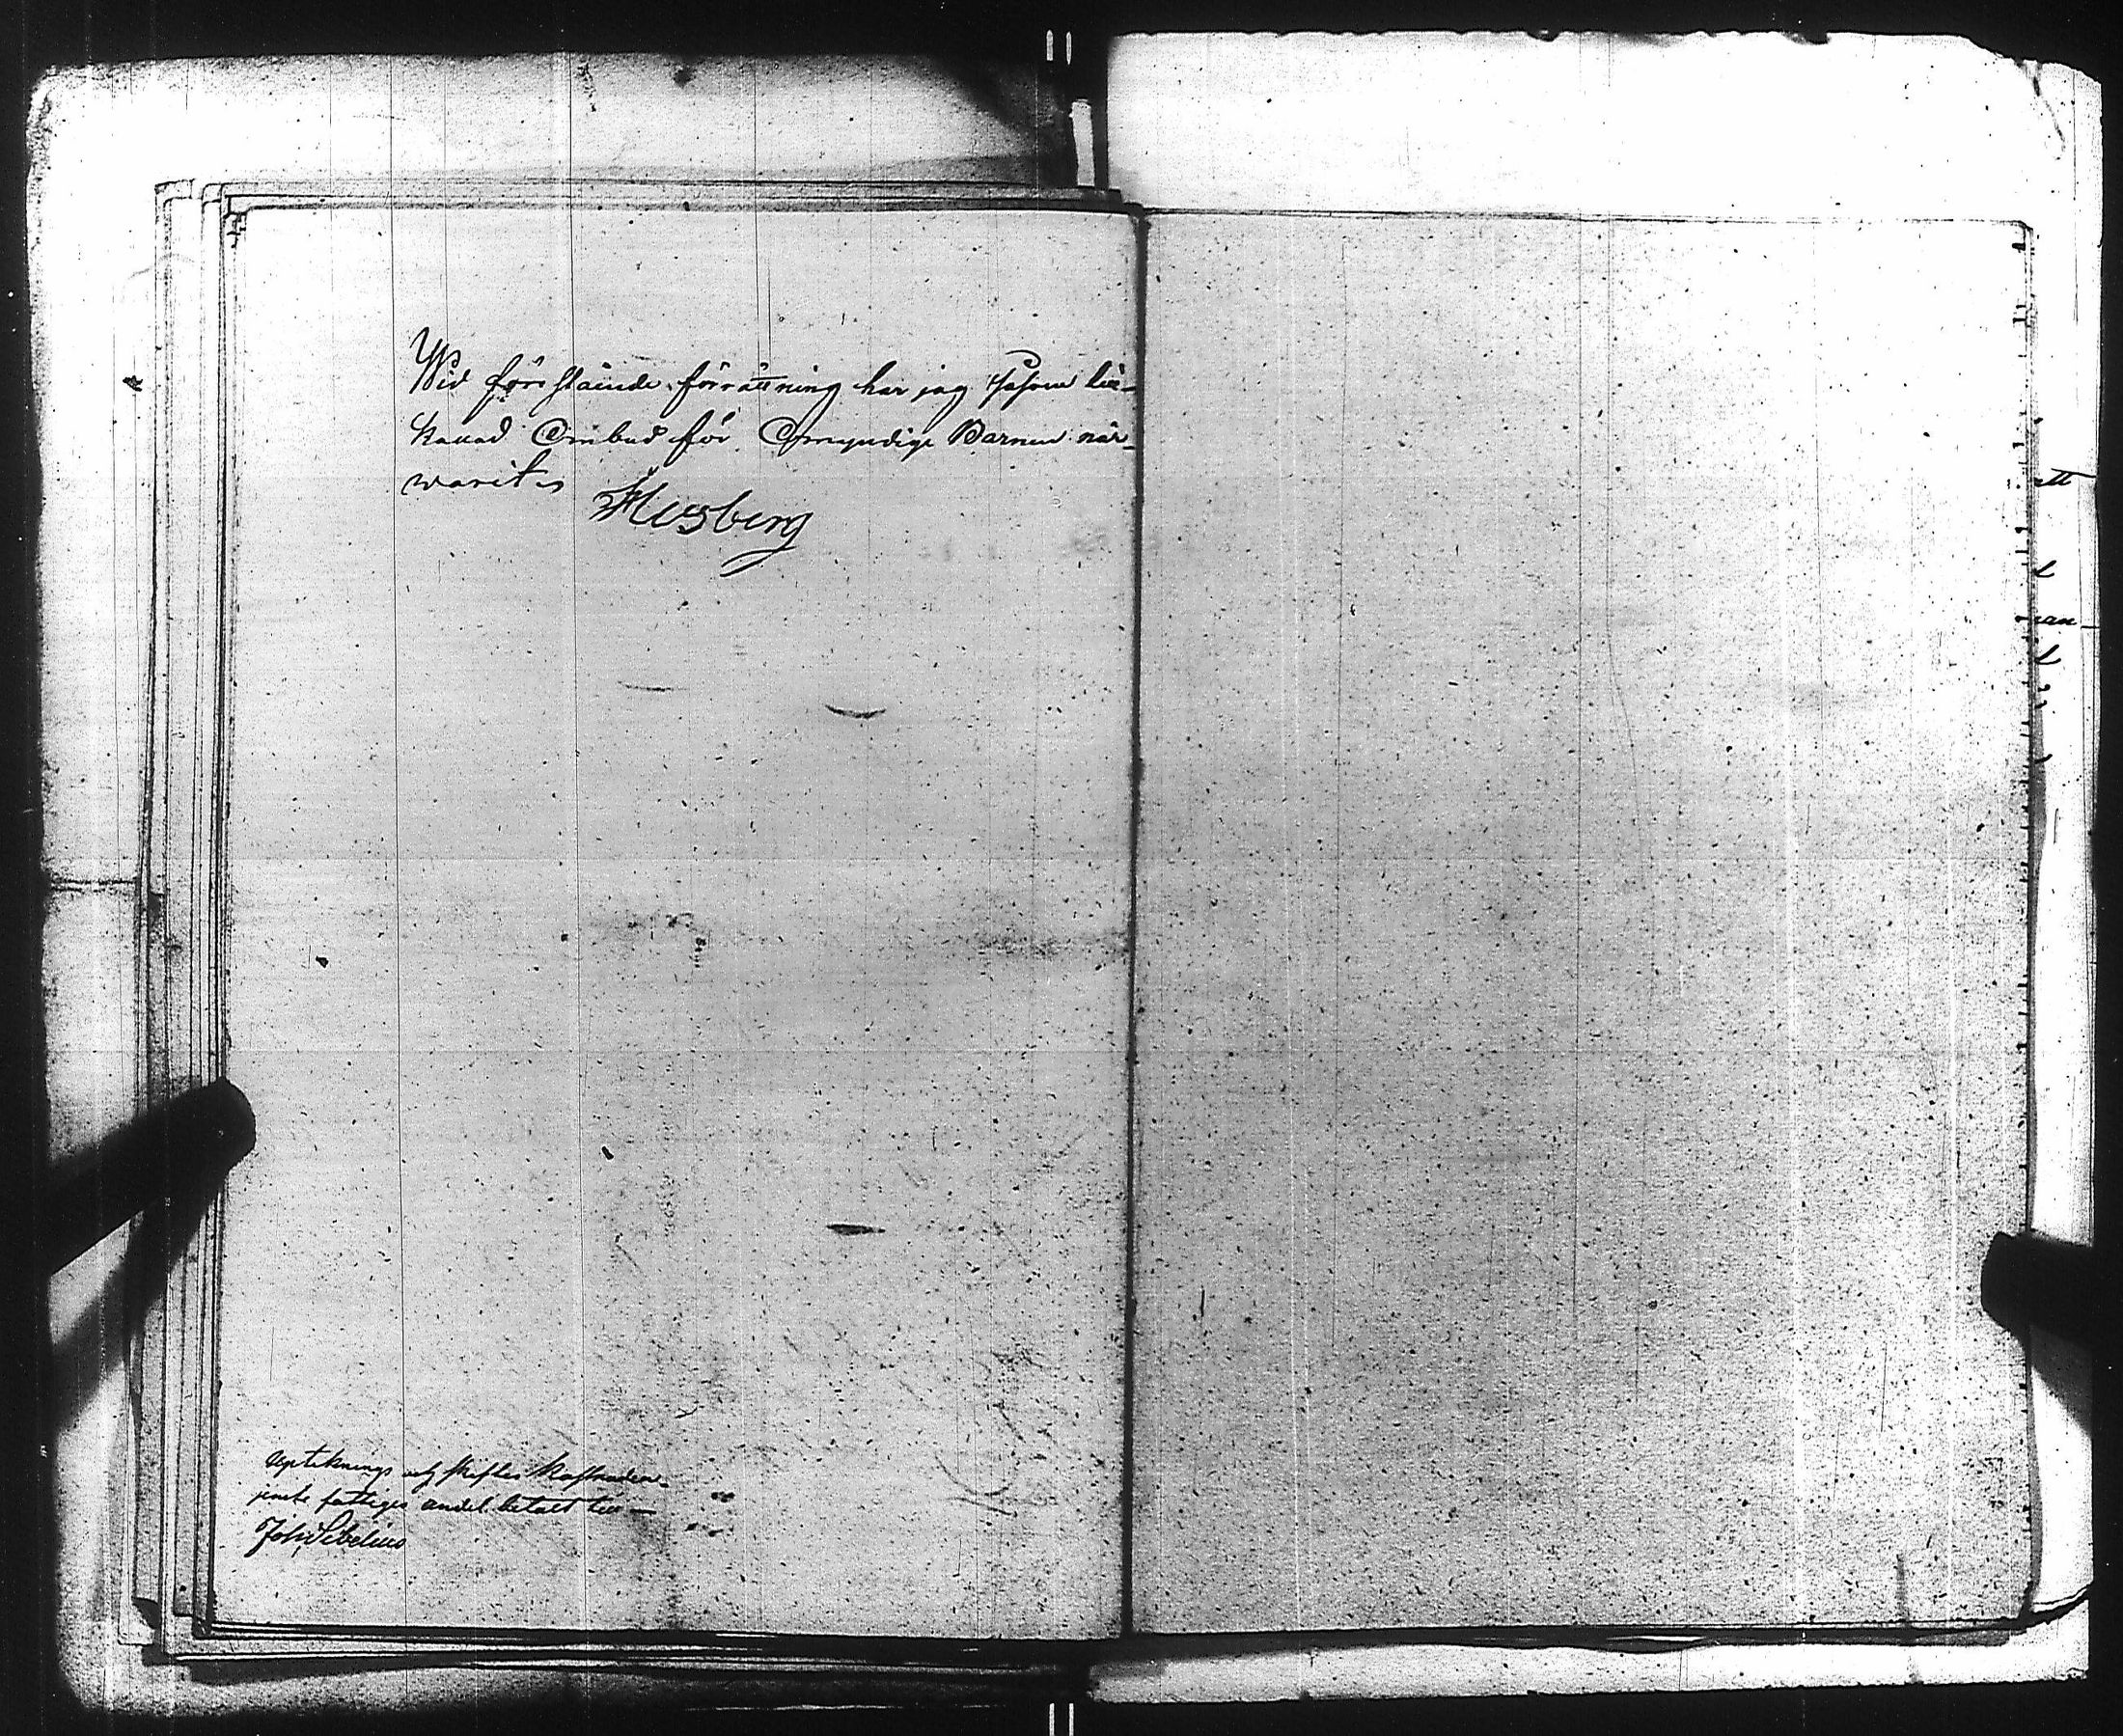 Wid förestående förrättning har jag såsom till-
kallad Ombud för Omyndige Barnen när-
warit
Husberg
Upteknings och skiftes kostnaden
jemte fattiges andel betalt till
Joh Sibelius
ett